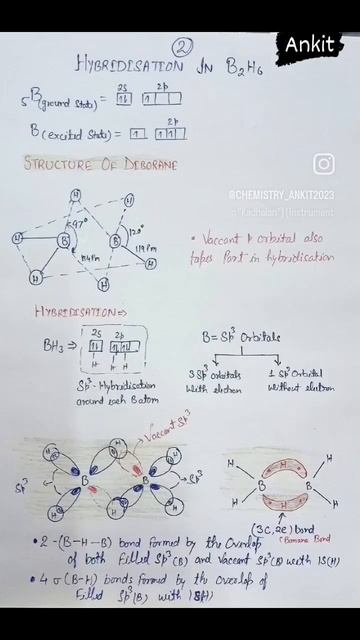 Ankit
2
HYBRIDISATION IN B2H6
5B(ground state) = 2s 2p
1↓ 1
B(excited state) = 2p
1 1 1
STRUCTURE OF DIBORANE
@CHEMISTRY_ANKIT2023
"Kadhalan"|(Instrument
H H
97° 120°
H B B H
119 Pm
H H H
• Vaccant p orbital also
takes part in hybridisation
HYBRIDISATION ⇒
2s 2p
BH3 ⇒
H H H
Sp3-Hybridisation
around each B atom
B = Sp3 Orbitals
3 Sp3 orbitals 1 Sp3 Orbital
with electron without electron
Vaccant Sp3
H H H H H
Sp3 B B Sp3
H H H
H H H
B B
H H H
(3C, 2e) bond
(Banana Bond)
• 2-(B-H-B) bond formed by the Overlap
of both Filled Sp3(B) and Vaccant Sp3(B) with 1S(H)
• 4 σ (B-H) bonds formed by the overlap of
Filled Sp3(B) with 1S(H)